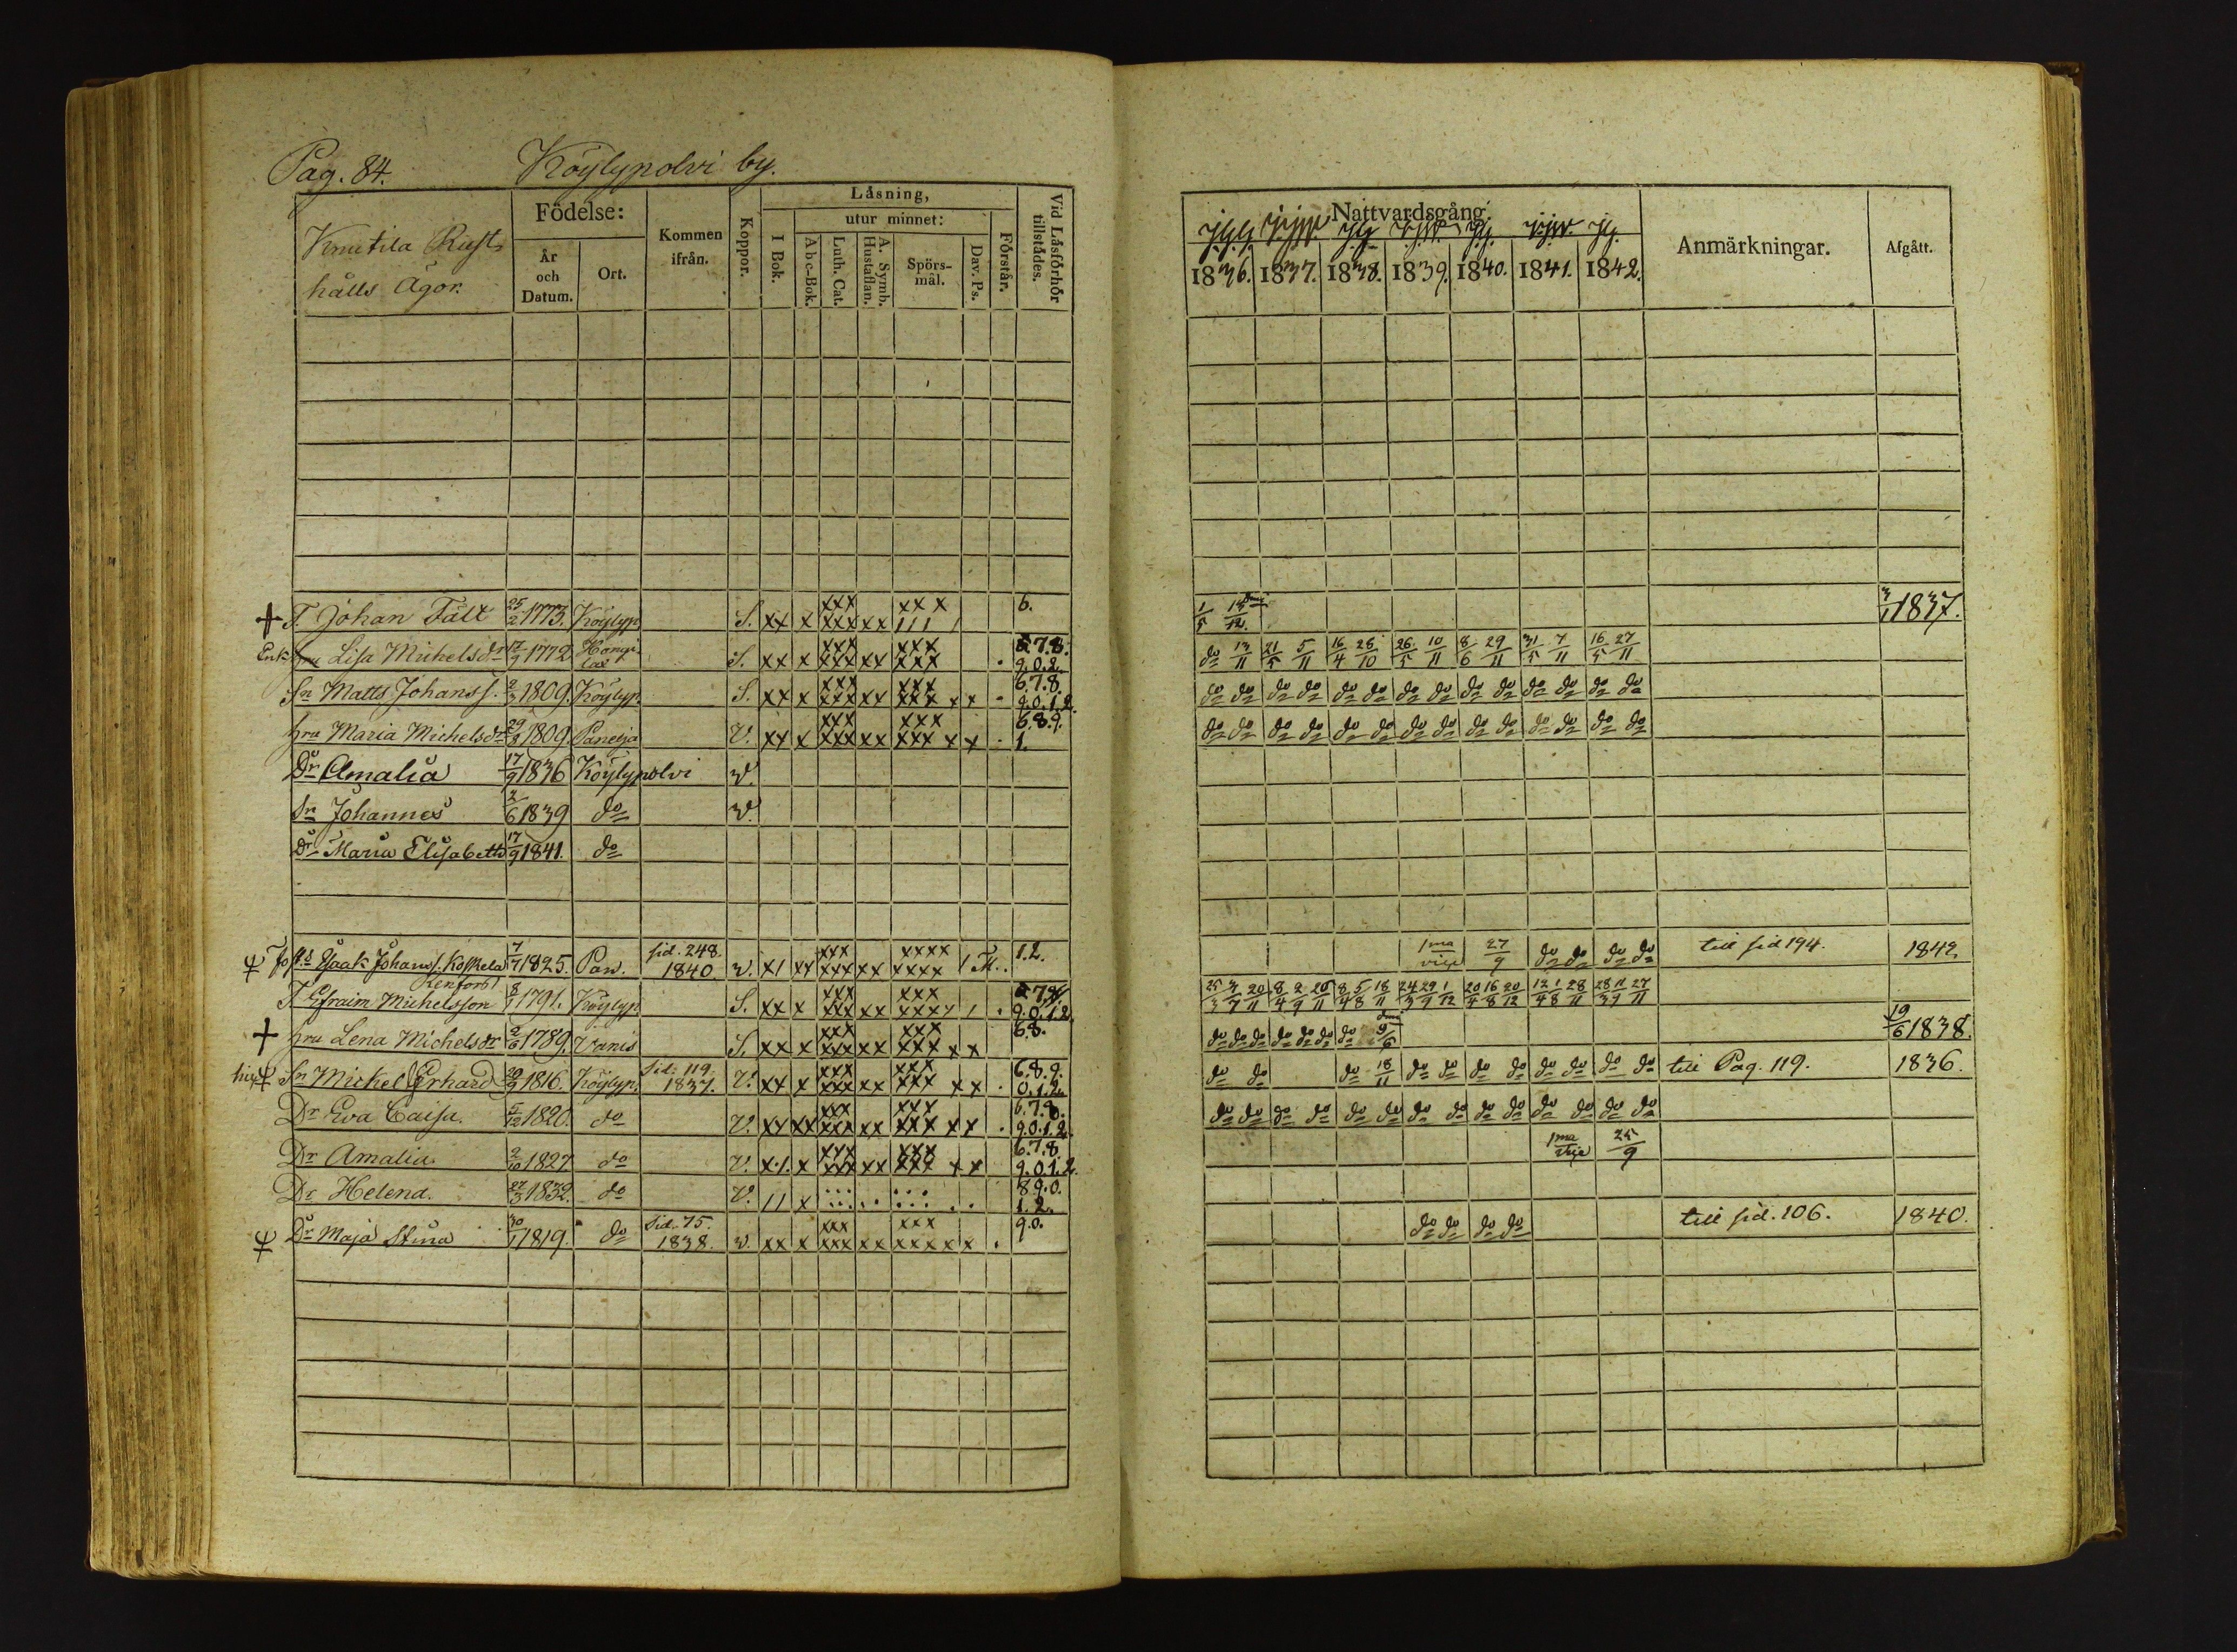 Pag. 84. Köylypolvi by.
Knutila Rust-
hålls Ägor.
Födelse:
År
och
Datum.
Ort.
Kommen
ifrån.
Koppor.
Läsning,
I Bok.
utur minnet:
A b c-Bok.
Luth. Cat.
A. Symb.
Hustaflan.
Spörs-
mål.
Dav. Ps.
Förstår.
Vid Läsförhör
tillstädes.
Nattvardsgång.
1836. 1837. 1838. 1839. 1840. 1841. 1842.
Anmärkningar.
Afgått.
+ T. Johan Fält 25/2 1773. Köylyp. S. xx x xxx xxx xx xxx 6. 1/5 13/12 3/1 1837.
Enk. Lisa Michelsdr 17/9 1772 Hongi-
las S. xx x xxx xxx xx xxx xxx . 7.8.
9.0.2. do 13/11 21/5 5/11 16/4 28/10 26/5 10/11 8/6 29/11 31/5 7/11 16/5 27/11
Sn Matts Johanss. 2/3 1809. Köylyp. S. xx x xxx xxx xx xxx xxx x x 6.7.8.
9.0.1.2. do do do do do do do do do do do do do do
hru Maria Michelsdr 29/8 1809 Panelja V. xx x xxx xxx xx xxx xxx x x 6.8.9.
1. do do do do do do do do do do do do do do
Dr Amalia 17/9 1836 Köylypolvi v.
Sn Johannes 2/6 1839 do v.
Dr Maria Elisabeth 17/9 1841. do
Isaak Johanss. Koskela 7/7 1825. Pan. sid. 248.
1840 v. x1 xx xxx xxx xx xxxx xxxx 1.2. 1ma
vice 27/9 do do do do till sid 194. 1842.
Renfors
T. Efraim Michelsson 8/1 1791. Köylyp. S. xx x xxx xxx xx xxx xxxx . 7.8.
9.0.1.2. 25/3 3/7 20/11 8/4 2/9 20/11 8/4 5/8 18/11 24/3 29/9 1/12 20/4 16/8 20/12 12/4 1/8 28/11 28/3 11/9 27/11
+ hru Lena Michelsdr 2/6 1789. Vanis S. xx x xxx xxx xx xxx xxx xx 6.8. do do do do do do do 9/6 19/6 1838.
Sn Mickel Erhard 29/9 1816. Köylyp. Sid. 119.
1837. V. xx x xxx xxx xx xxx xxx xx . 6.8.9.
0.1.2. do do do 18/11 do do do do do do do do till Pag. 119. 1836.
Dr Eva Caisa. 5/12 1820. do V. xx xx xxx xxx xx xxx xxx xx . 6.7.8.
9.0.1.2. do do do do do do do do do do do do do do
Dr Amalia 2/10 1827 do V. x. 1. x xxx xxx xx xxx xxx xx 6.7.8.
9.0.1.2. 1ma
vice 25/9
Dr Helena. 27/3 1832. do V. 11 x 8.9.0.
1.2.
Dr Maja Stina 30/1 1819. do Sid. 75.
1838. v. xx x xxx xxx xx xxx xxx xx . 9.0. do do do do till sid. 106. 1840.